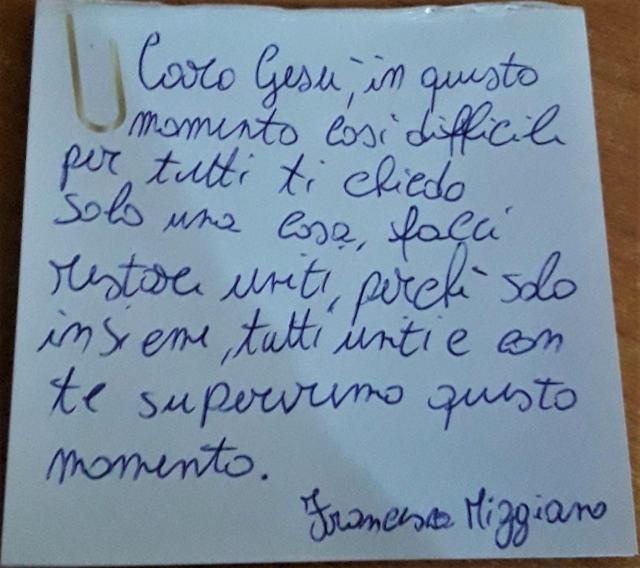 Caro Gesù, in questo
momento così difficile
per tutti ti chiedo
solo una cosa, facci
restare uniti, perché solo
insieme, tutti uniti e con
te supereremo questo
momento.
Francesca Miggiano